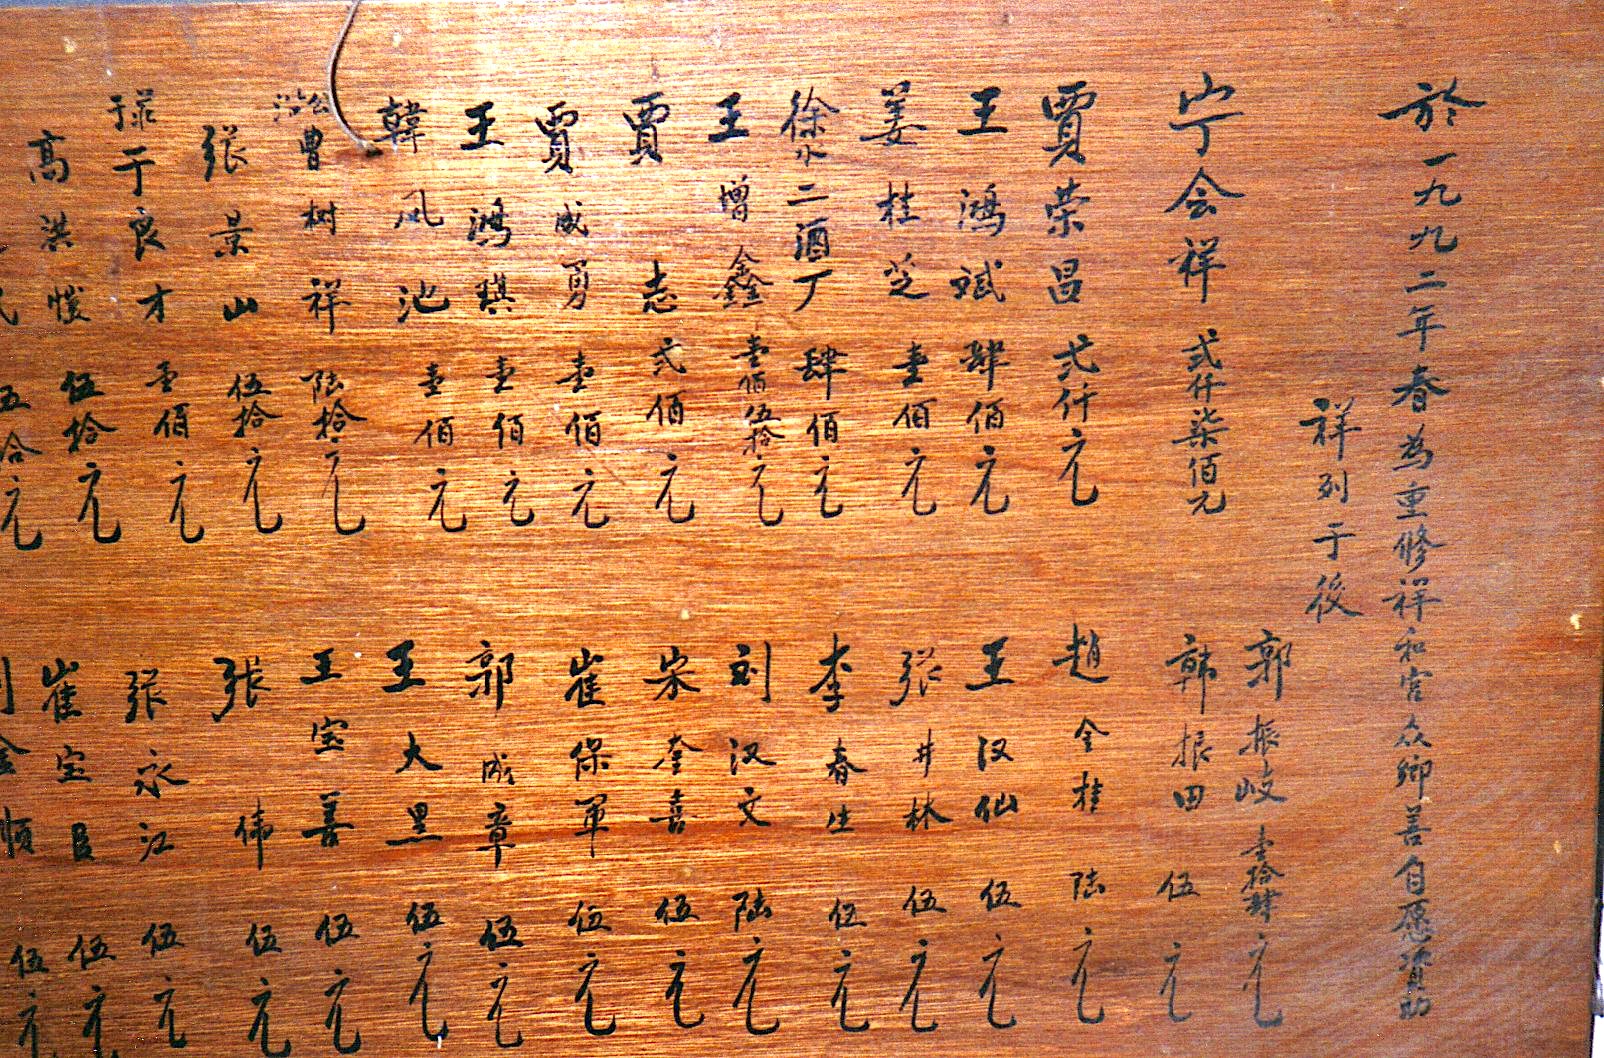 於一九九二年春为重修祥和宫众鄉善自愿資助
祥列于後
宁会祥 贰仟柒佰元
賈荣昌 弍仟元
王鴻斌 肆佰元
姜桂芝 壹佰元
徐水二酒厂 肆佰元
王增鑫 壹佰伍拾元
賈志 弍佰元
賈成勇 壹佰元
王鴻琪 壹佰元
韓风池 壹佰元
曹树祥 陆拾元
张景山 伍拾元
于良才 壹佰元
高洪俊 伍拾元
郭振岐 壹拾肆元
韩振田 伍元
趙金桂 陆元
王汉仙 伍元
张井林 伍元
李春生 伍元
刘汉文 陆元
宋奎喜 伍元
崔保軍 伍元
郭成章 伍元
王大黑 伍元
王宝善 伍元
张伟 伍元
张永江 伍元
崔宝 伍元
伍元